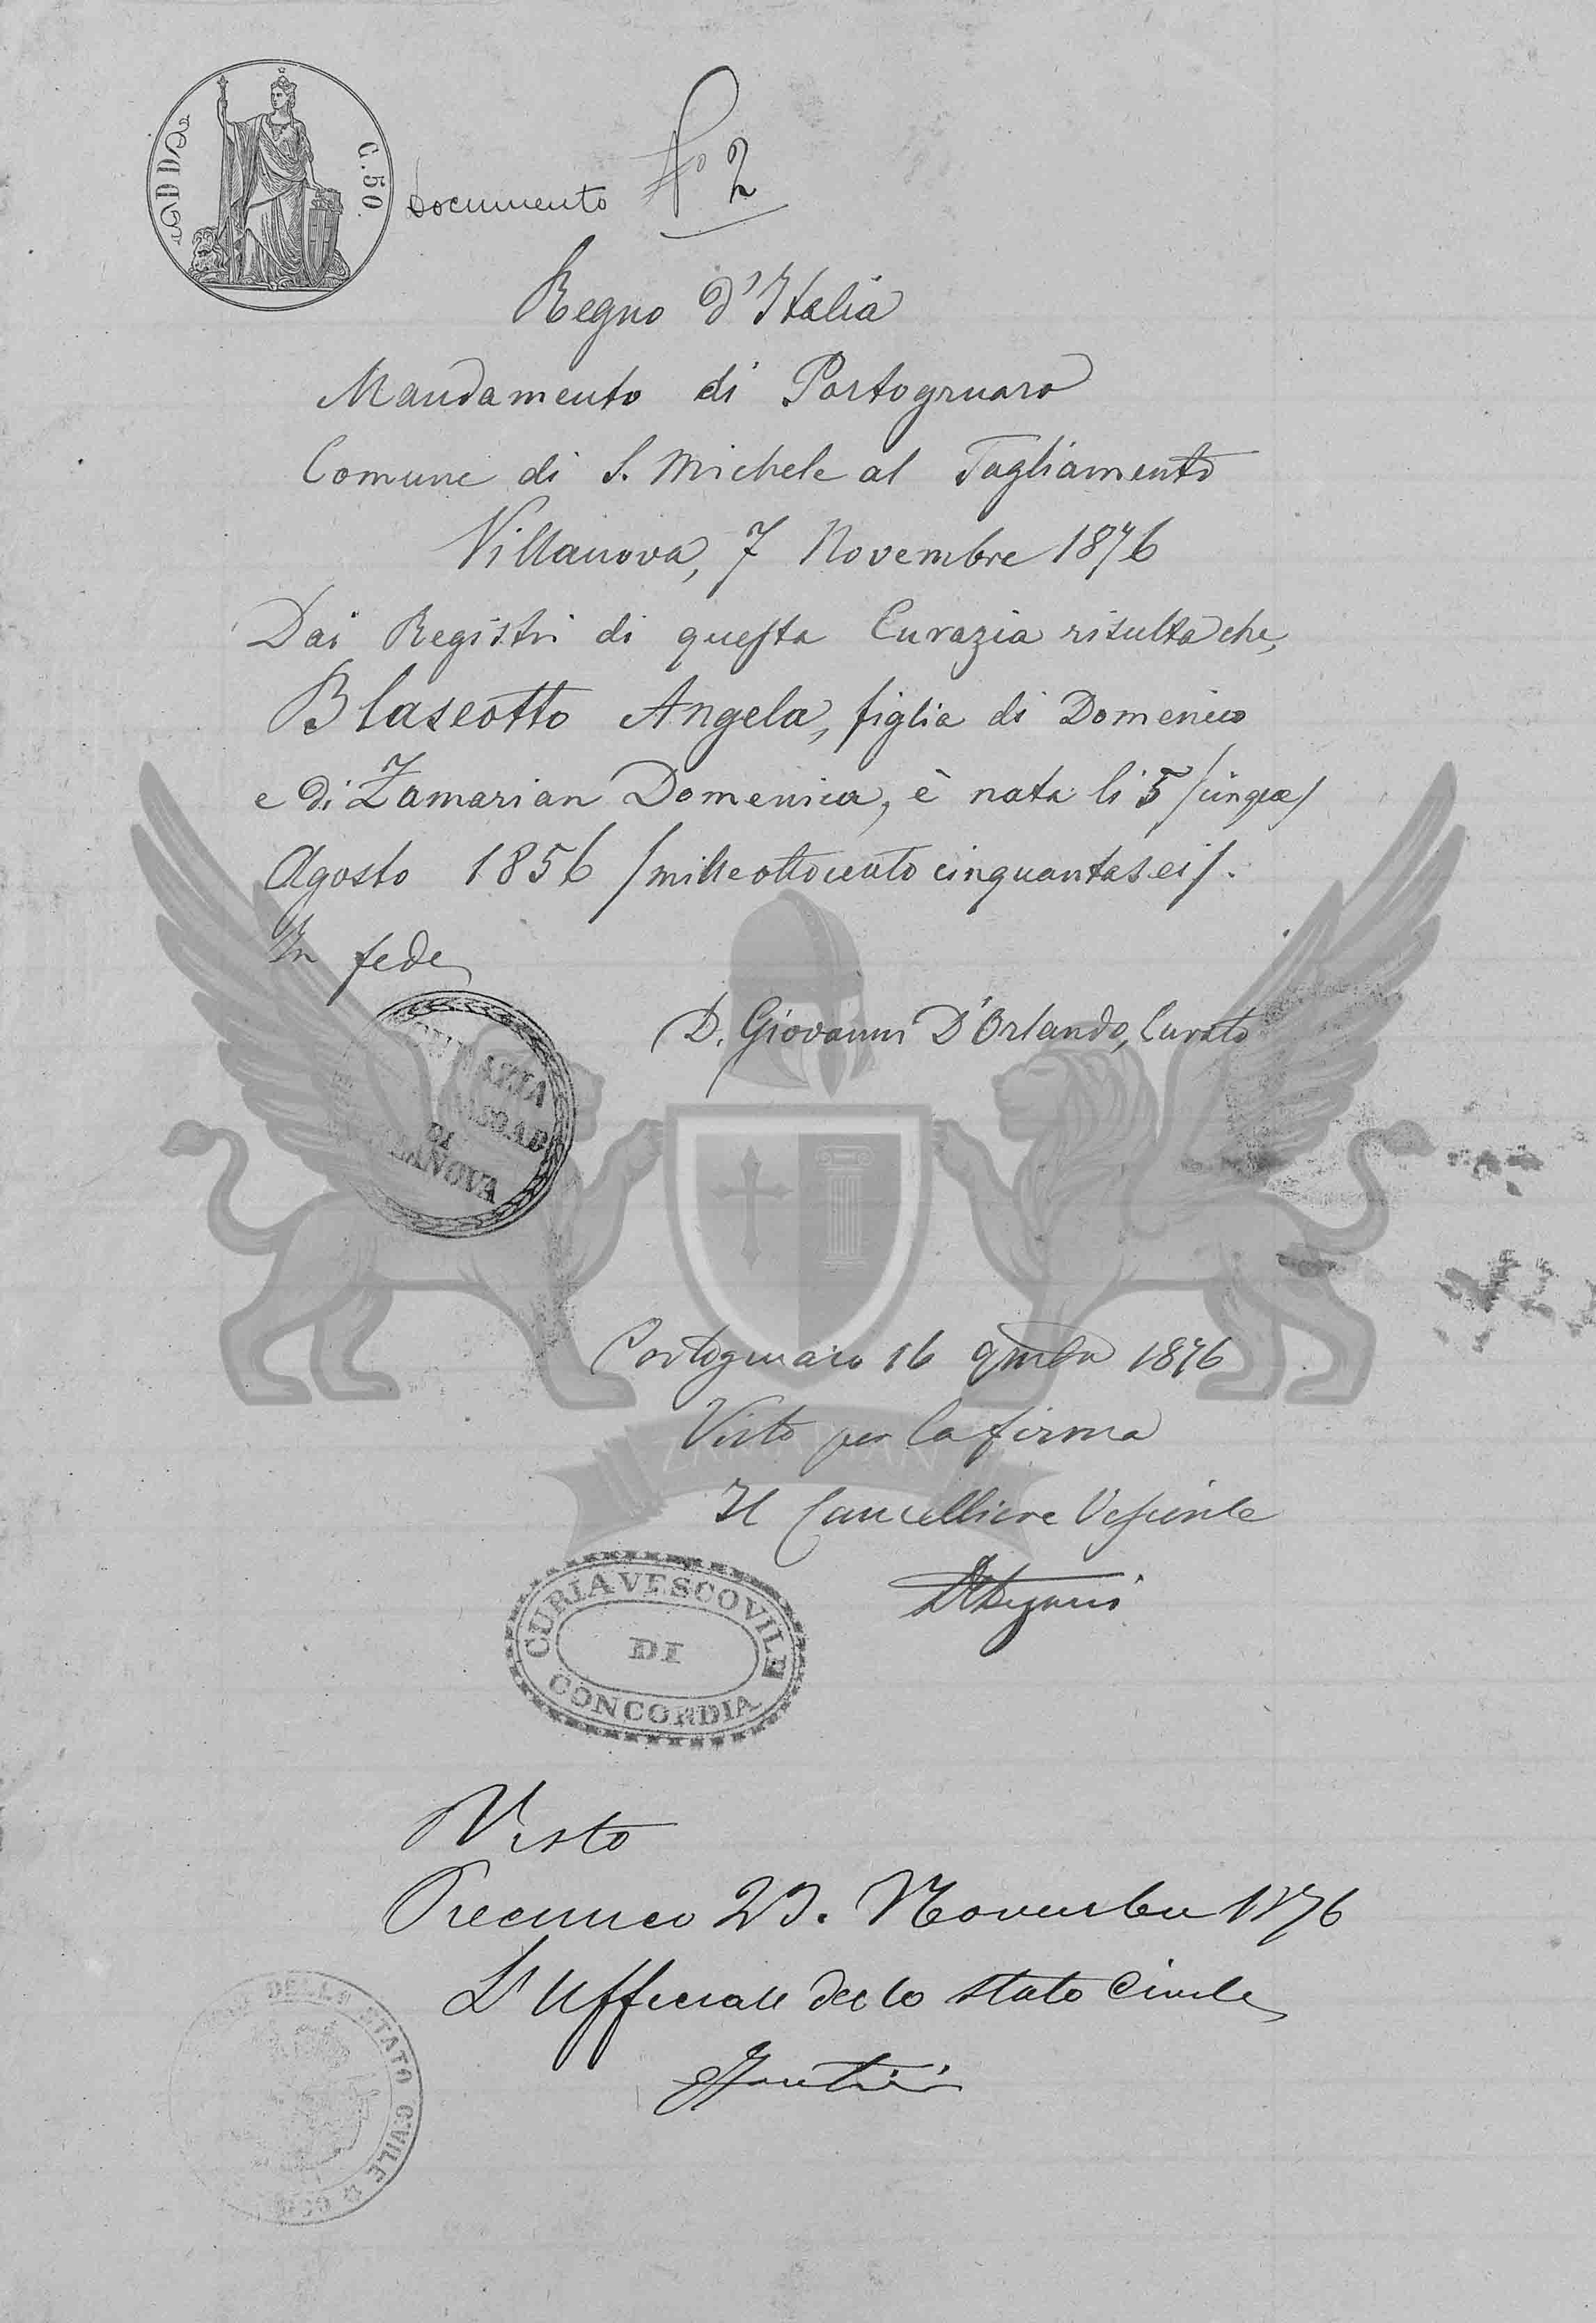 C. 50.
Documento No 2
Regno d'Italia
Mandamento di Portogruaro
Comune di S. Michele al Tagliamento
Villanova, 7 Novembre 1876
Dai Registri di questa Curazia risulta che,
Blaseotto Angela, figlia di Domenico
e di Zamarian Domenica, è nata li 5 /cinque/
Agosto 1856 /milleottocento cinquantasei/.
In fede
D. Giovanni D'Orlando, Curato
DI
Portogruaro 16 9mbre 1876
Visto per la firma
Il Cancelliere Vescovile
CURIA VESCOVILE
DI
CONCORDIA
Visto
Precenico 23. Novembre 1876
L'Ufficiale dello stato Civile
DELLO STATO CIVILE